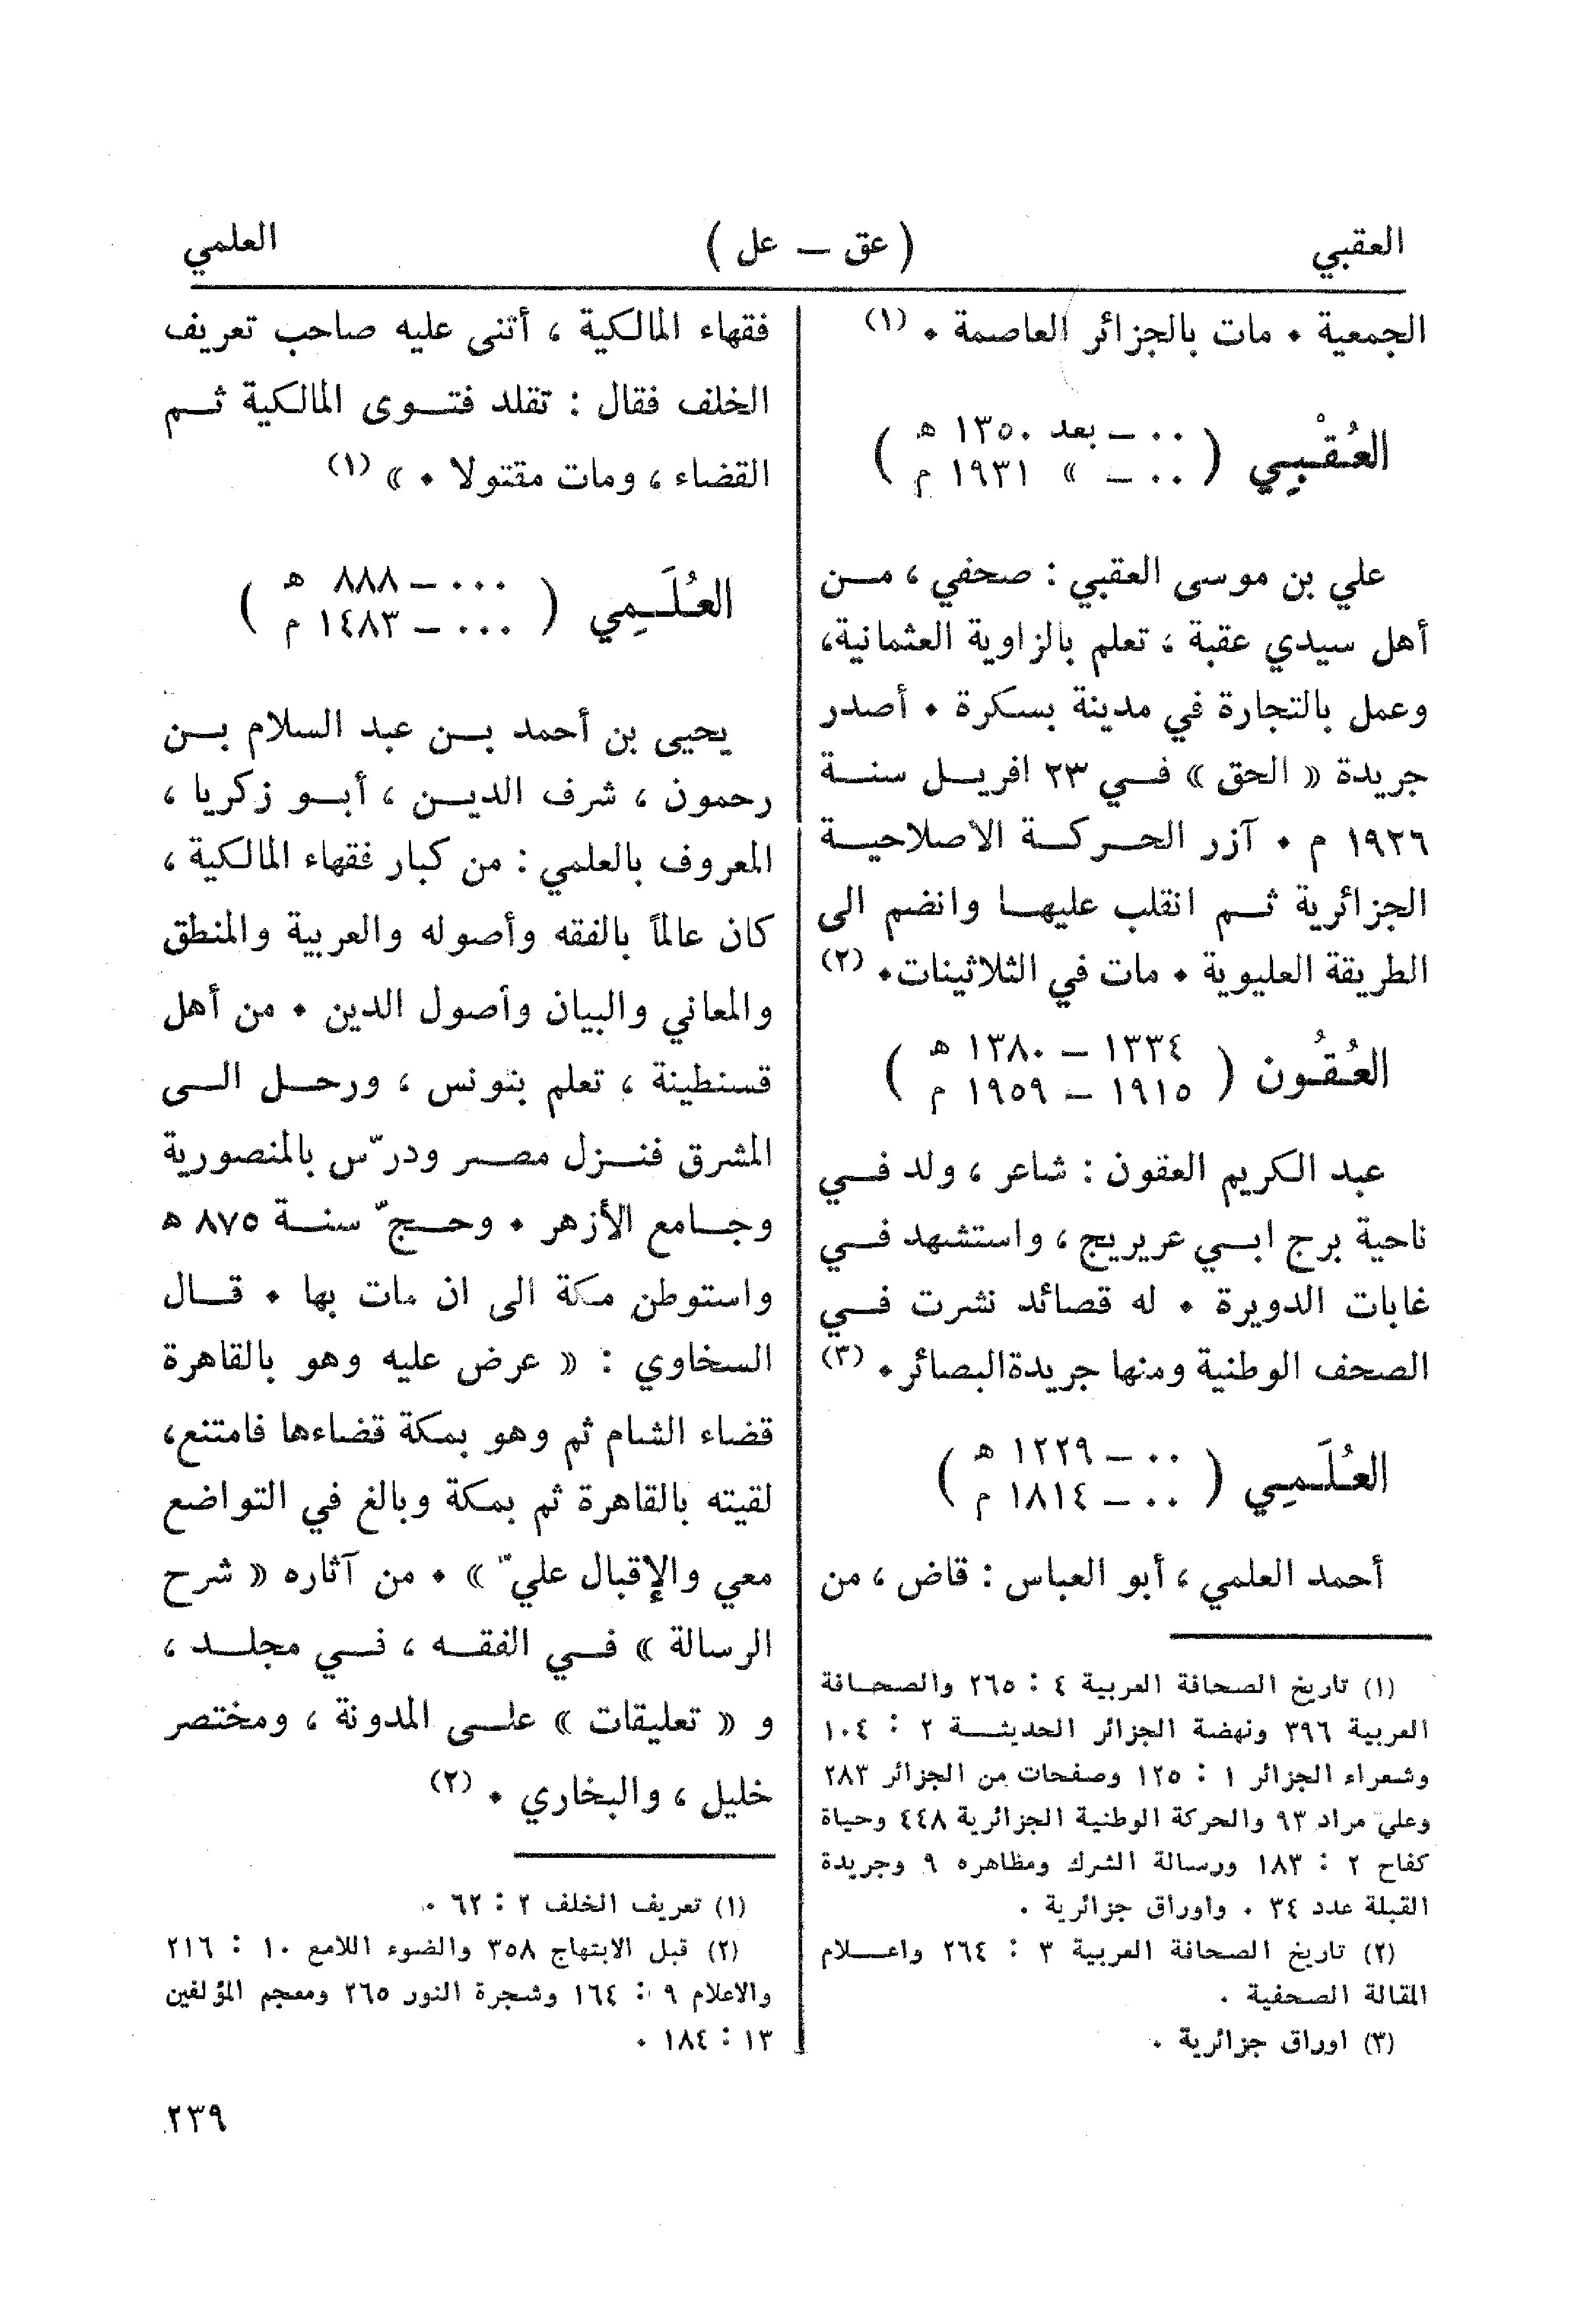 العقبي ( عق – عل ) العلمي
الجمعية . مات بالجزائر العاصمة . (١)
العُقْبِي ( ٠٠ – بعد ١٣٥٠ هـ
٠٠ – » ١٩٣١ م )
علي بن موسى العقبي : صحفي ، من
أهل سيدي عقبة ، تعلم بالزاوية العثمانية،
وعمل بالتجارة في مدينة بسكرة . أصدر
جريدة « الحق » في ٢٣ افريل سنة
١٩٢٦ م . آزر الحركة الاصلاحية
الجزائرية ثم انقلب عليها وانضم الى
الطريقة العليوية . مات في الثلاثينات. (٢)
العُقُون ( ١٣٣٤ – ١٣٨٠ هـ
١٩١٥ – ١٩٥٩ م )
عبد الكريم العقون : شاعر ، ولد في
ناحية برج ابي عريريج ، واستشهد في
غابات الدويرة . له قصائد نشرت في
الصحف الوطنية ومنها جريدةالبصائر . (٣)
العُلَمِي ( ٠٠ – ١٢٢٩ هـ
٠٠ – ١٨١٤ م )
أحمد العلمي ، أبو العباس : قاض ، من
(١) تاريخ الصحافة العربية ٤ : ٢٦٥ والصحافة
العربية ٣٩٦ ونهضة الجزائر الحديثة ٢ : ١٠٤
وشعراء الجزائر ١ : ١٢٥ وصفحات من الجزائر ٢٨٣
وعلي مراد ٩٣ والحركة الوطنية الجزائرية ٤٤٨ وحياة
كفاح ٢ : ١٨٣ ورسالة الشرك ومظاهره ٩ وجريدة
القبلة عدد ٣٤ . واوراق جزائرية .
(٢) تاريخ الصحافة العربية ٣ : ٢٦٤ واعلام
المقالة الصحفية .
(٣) اوراق جزائرية .
فقهاء المالكية ، أتنى عليه صاحب تعريف
الخلف فقال : تقلد فتوى المالكية ثم
القضاء ، ومات مقتولا . » (١)
العُلَمِي ( ٠٠٠ – ٨٨٨ هـ
٠٠٠ – ١٤٨٣ م )
يحيى بن أحمد بن عبد السلام بن
رحمون ، شرف الدين ، أبو زكريا ،
المعروف بالعلمي : من كبار فقهاء المالكية ،
كان عالمًا بالفقه وأصوله والعربية والمنطق
والمعاني والبيان وأصول الدين . من أهل
قسنطينة ، تعلم بتونس ، ورحل الى
المشرق فنزل مصر ودرّس بالمنصورية
وجامع الأزهر . وحجّ سنة ٨٧٥ هـ
واستوطن مكة الى ان مات بها . قال
السخاوي : « عرض عليه وهو بالقاهرة
قضاء الشام ثم وهو بمكة قضاءها فامتنع،
لقيته بالقاهرة ثم بمكة وبالغ في التواضع
معي والإقبال عليّ » . من آثاره « شرح
الرسالة » في الفقه ، في مجلد ،
و « تعليقات » على المدونة ، ومختصر
خليل ، والبخاري . (٢)
(١) تعريف الخلف ٢ : ٦٢ .
(٢) قبل الابتهاج ٣٥٨ والضوء اللامع ١٠ : ٢١٦
والاعلام ٩ : ١٦٤ وشجرة النور ٢٦٥ ومعجم المؤلفين
١٣ : ١٨٤ .
٢٣٩